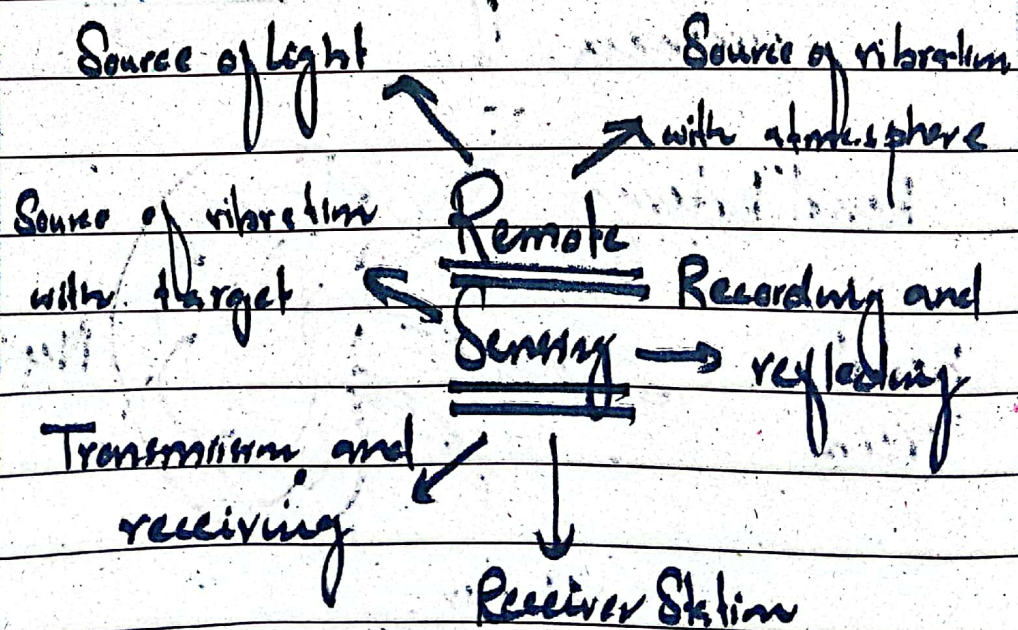 Source of Light
Source of vibration
with atmosphere
Source of vibration
with target
Remote
Sensing
Recording and
reflecting
Transmission and
receiving
Receiver Station